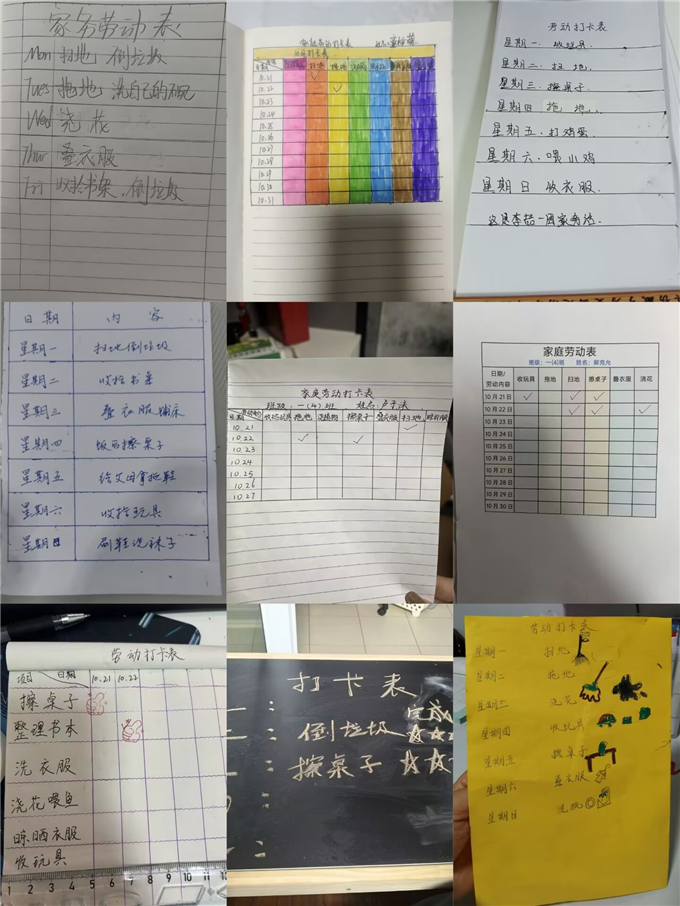 家务劳动表
Mon 扫地 倒垃圾
Tues 拖地 洗自己的碗
Wed 浇花
Thur 叠衣服
Fri 收拾书架、倒垃圾
劳动打卡表
日期
扫地
10.21
10.22
10.23
10.24
10.25
10.26
10.27
10.28
10.29
10.30
10.31
劳动打卡表
星期一、收玩具.
星期二、扫地.
星期三、擦桌子.
星期四 拖地.
星期五、打鸡蛋.
星期六、喂小鸡
星期日 收衣服.
日期 内容
星期一 扫地倒垃圾
星期二 收拾书桌
星期三 叠衣服铺床
星期四 饭后擦桌子
星期五 给父母拿拖鞋
星期六 收拾玩具
星期日 刷鞋洗袜子
家庭劳动打卡表
班级:一(4)班 姓名:卢
日期 收玩具 拖地 擦桌子 叠衣服 扫地
10.21
10.22
10.23
10.24
10.25
10.26
10.27
家庭劳动表
班级:一(4)班 姓名:
日期/劳动内容 收玩具 拖地 扫地 擦桌子 叠衣服 浇花
10月21日
10月22日
10月23日
10月24日
10月25日
10月26日
10月27日
10月28日
10月29日
10月30日
劳动打卡表
项目 日期 10.21 10.22
擦桌子
整理书本
洗衣服
浇花喂鱼
晾晒衣服
收玩具
1 2 3 4 5 6 7 8 9 10 11 12
打卡表
一:
二: 倒垃圾 完成
三: 擦桌子
劳动打卡表
星期一 扫地
星期二 拖地
星期三 浇花
星期四 收玩具
星期五 擦桌子
星期六 叠衣服
星期日 洗碗